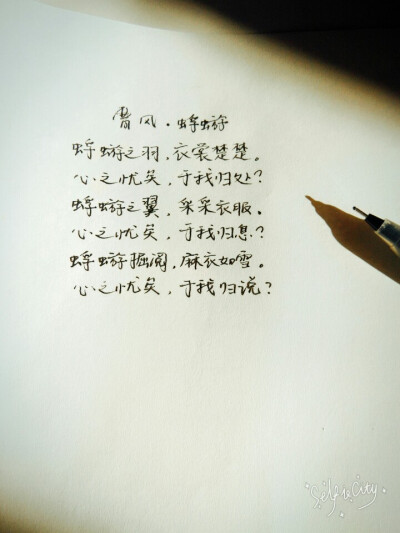 曹风·蜉蝣
蜉蝣之羽，衣裳楚楚。
心之忧矣，于我归处？
蜉蝣之翼，采采衣服。
心之忧矣，于我归息？
蜉蝣掘阅，麻衣如雪。
心之忧矣，于我归说？
SelfieCity